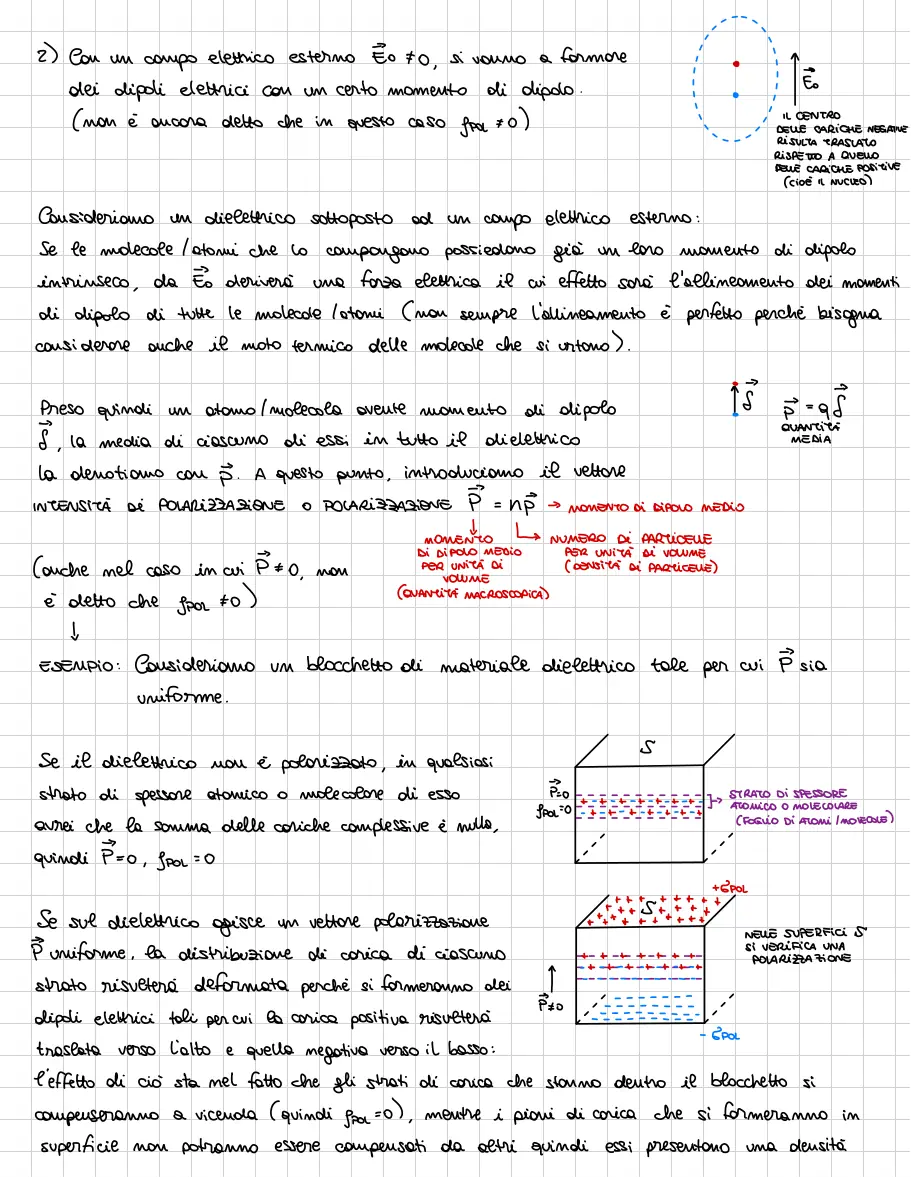 2) Con un campo elettrico esterno E⃗₀ ≠ 0, si vanno a formare
dei dipoli elettrici con un certo momento di dipolo.
(non è ancora detto che in questo caso ρPOL ≠ 0)
E⃗₀
IL CENTRO
DELLE CARICHE NEGATIVE
RISULTA TRASLATO
RISPETTO A QUELLO
DELLE CARICHE POSITIVE
(CIOÈ IL NUCLEO)
Consideriamo un dielettrico sottoposto ad un campo elettrico esterno:
Se le molecole/atomi che lo compongono possiedono già un loro momento di dipolo
intrinseco, da E⃗₀ deriverà una forza elettrica il cui effetto sarà l'allineamento dei momenti
di dipolo di tutte le molecole/atomi (non sempre l'allineamento è perfetto perché bisogna
considerare anche il moto termico delle molecole che si urtano).
Preso quindi un atomo/molecola avente momento di dipolo
δ⃗, la media di ciascuno di essi in tutto il dielettrico
la denotiamo con p⃗. A questo punto, introduciamo il vettore
INTENSITÀ DI POLARIZZAZIONE O POLARIZZAZIONE P⃗ = np⃗ → MOMENTO DI DIPOLO MEDIO
δ⃗
p⃗ = qδ⃗
QUANTITÀ
MEDIA
MOMENTO
DI DIPOLO MEDIO
PER UNITÀ DI
VOLUME
(QUANTITÀ MACROSCOPICA)
NUMERO DI PARTICELLE
PER UNITÀ DI VOLUME
(DENSITÀ DI PARTICELLE)
(anche nel caso in cui P⃗ ≠ 0, non
è detto che ρPOL ≠ 0)
↓
ESEMPIO: Consideriamo un blocchetto di materiale dielettrico tale per cui P⃗ sia
uniforme.
Se il dielettrico non è polarizzato, in qualsiasi
strato di spessore atomico o molecolare di esso
avrei che la somma delle cariche complessive è nulla,
quindi P⃗=0, ρPOL = 0
S
P⃗=0
ρPOL=0
STRATO DI SPESSORE
ATOMICO O MOLECOLARE
(FOGLIO DI ATOMI/MOLECOLE)
Se sul dielettrico agisce un vettore polarizzazione
P⃗ uniforme, la distribuzione di carica di ciascuno
strato risulterà deformata perché si formeranno dei
dipoli elettrici tali per cui la carica positiva risulterà
traslata verso l'alto e quella negativa verso il basso:
+σPOL
S
P⃗≠0
- σPOL
NELLE SUPERFICI S
SI VERIFICA UNA
POLARIZZAZIONE
l'effetto di ciò sta nel fatto che gli strati di carica che stanno dentro il blocchetto si
compenseranno a vicenda (quindi ρPOL=0), mentre i piani di carica che si formeranno in
superficie non potranno essere compensati da altri quindi essi presentano una densità